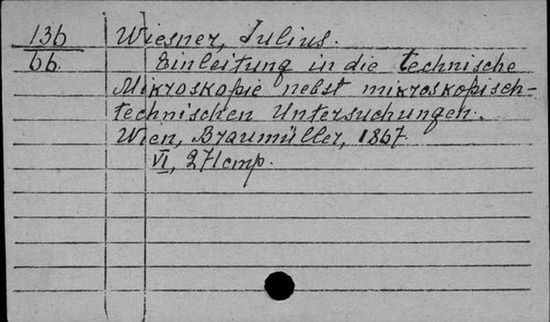 136 Wiesner, Julius.
66. Einleitung in die technische
Mikroskopie nebst mikroskopisch-
technischen Untersuchungen.
Wien, Braumüller, 1867.
VI, 271 стр.